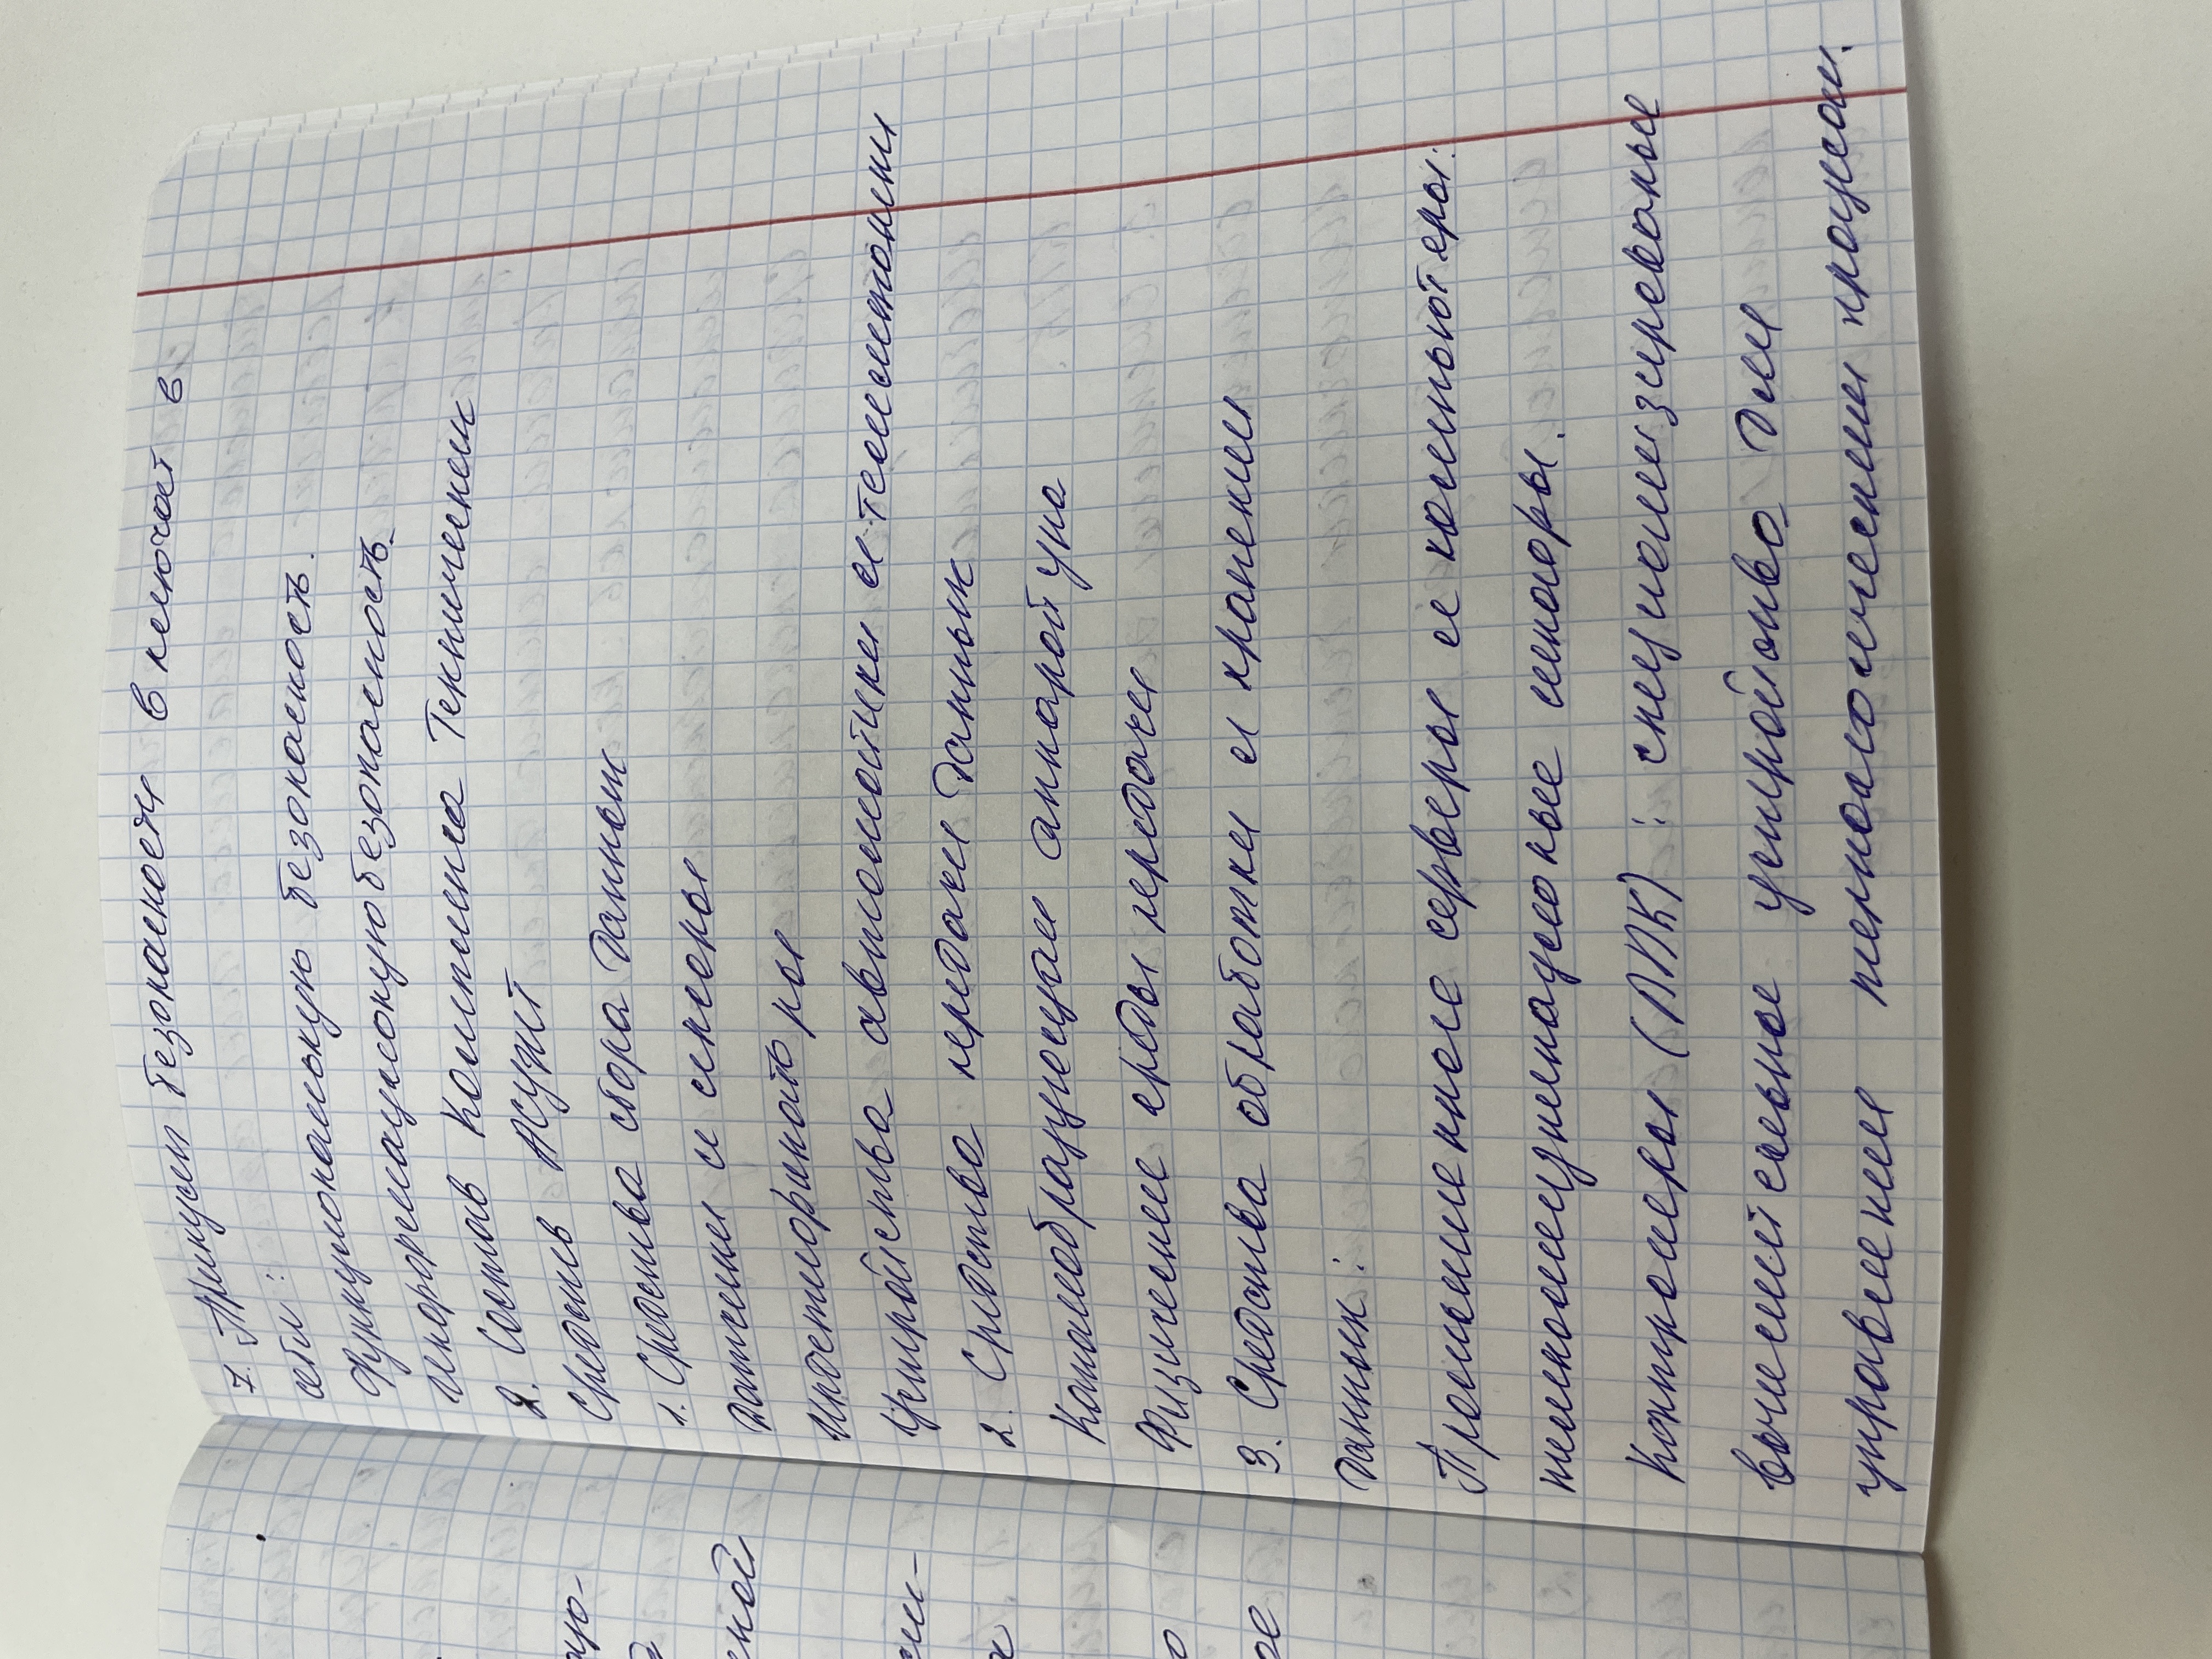 7. Принцип безопасности включает в
себя:
функциональную безопасность.
информационную безопасность
2. Состав Комплекса Технических
Средств АСУЖТ
1. Средства сбора данных
Датчики и сенсоры
Идентификаторы
Устройства автоматики и телемеханики
2. Средства передачи данных
Каналообразующая аппаратура
Физические среды передачи
3. Средства обработки и хранения
данных:
Промышленные серверы и компьютеры:
телекоммуникационные шкафы.
Контроллеры (ПЛК): специализированные
вычислительное устройство для
управления технологическими процессами.